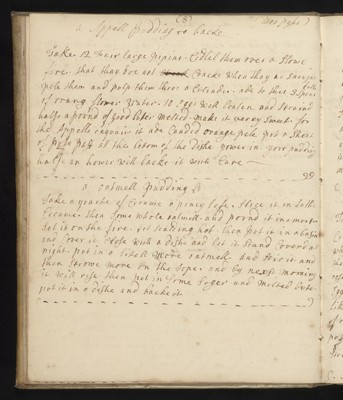 (8)
a Appell Pudding to backe
Take 12 fair large pipins Codlel them over a slowe
fire that thay doe not Cracke when thay ar Enough
peele them and pulp them throw a Colender. ade to this 3 spoonfulls
of orang flower water. 10 Eggs well beaten and straind
half a pound of good buter melted make it varey sweet for
the Appells requier it ade Candid orange pele put a sheet
of paste att the botom of the dishe power in your pudding
half an hower will backe it with Care
a oatmell Pudding
Take a quarte of Creame a peney lofe. slice it in to the
Creame. then some whole oatmell and pound it in a morter
set it on the fire. let it scalding hot. then put it in a bason
and Cover it Close with a dishe and let it stand Covered at
night. put in a littell more oatmeale and stir it and
then strowe more on the tope. and by next morning
it will rise then put in some suger and melted buter
put it in a dishe and backe it